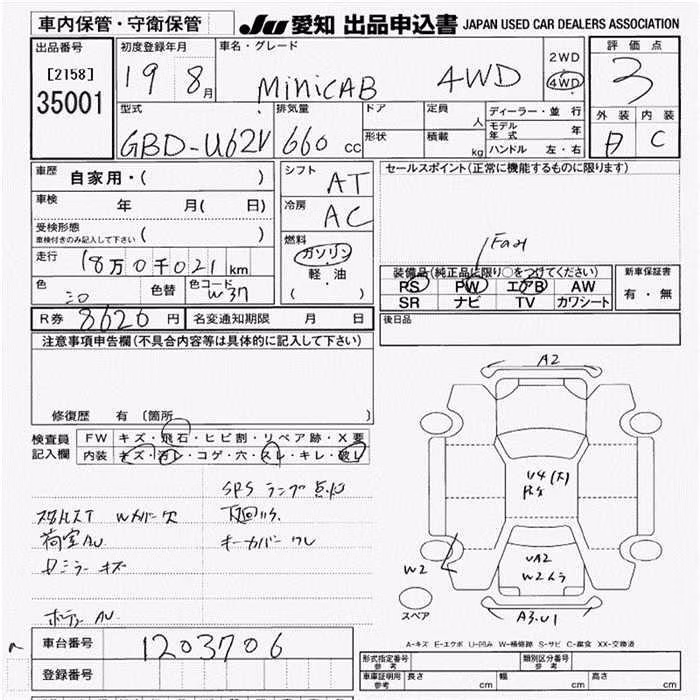 車内保管・守衛保管
JU 愛知 出品申込書 JAPAN USED CAR DEALERS ASSOCIATION
出品番号 初度登録年月 車名・グレード 2WD 評価点
[2158] 19 8月 MiNiCAB 4WD 4WD 3
35001
型式 排気量 ドア 定員 人 ディーラー・並行 外装 内装
GBD-U62V 660 cc モデル年式 年 C
形状 積載 kg ハンドル 左・右
車歴 自家用・( ) シフト AT セールスポイント(正常に機能するものに限ります)
車検 年 月( 日) 冷房 AC
受検形態
車検付きのみ記入して下さい ( ) 燃料
ガソリン
軽・油
( )
走行 18万0千021km
装備品(純正品に限り○をつけてください) 新車保証書
PS PW エアB AW 有・無
SR ナビ TV カワシート
色 シロ 色替 色コード W37
後日品
R券 8620円 名変通知期限 月 日
注意事項申告欄(不具合内容等は具体的に記入して下さい)
修復歴 有 〔箇所 〕
検査員 FW キズ・飛石・ヒビ割・リペア跡・X要
記入欄 内装 キズ・汚レ・コゲ・穴・スレ・キレ・破レ
SRSランプ点灯
下廻りサ
荷室AU キーカバーワレ
ミラーキズ
ボディAU
A2
U4(大)
UA2
W2
A3.U1
スペア
A-キズ E-エクボ U-凹み W-補修跡 S-サビ C-腐食 XX-交換済
車台番号 1203706
登録番号
形式指定番号 参考 類別区分番号 参考
車庫証明用 参考 長さ cm 幅 cm 高さ cm